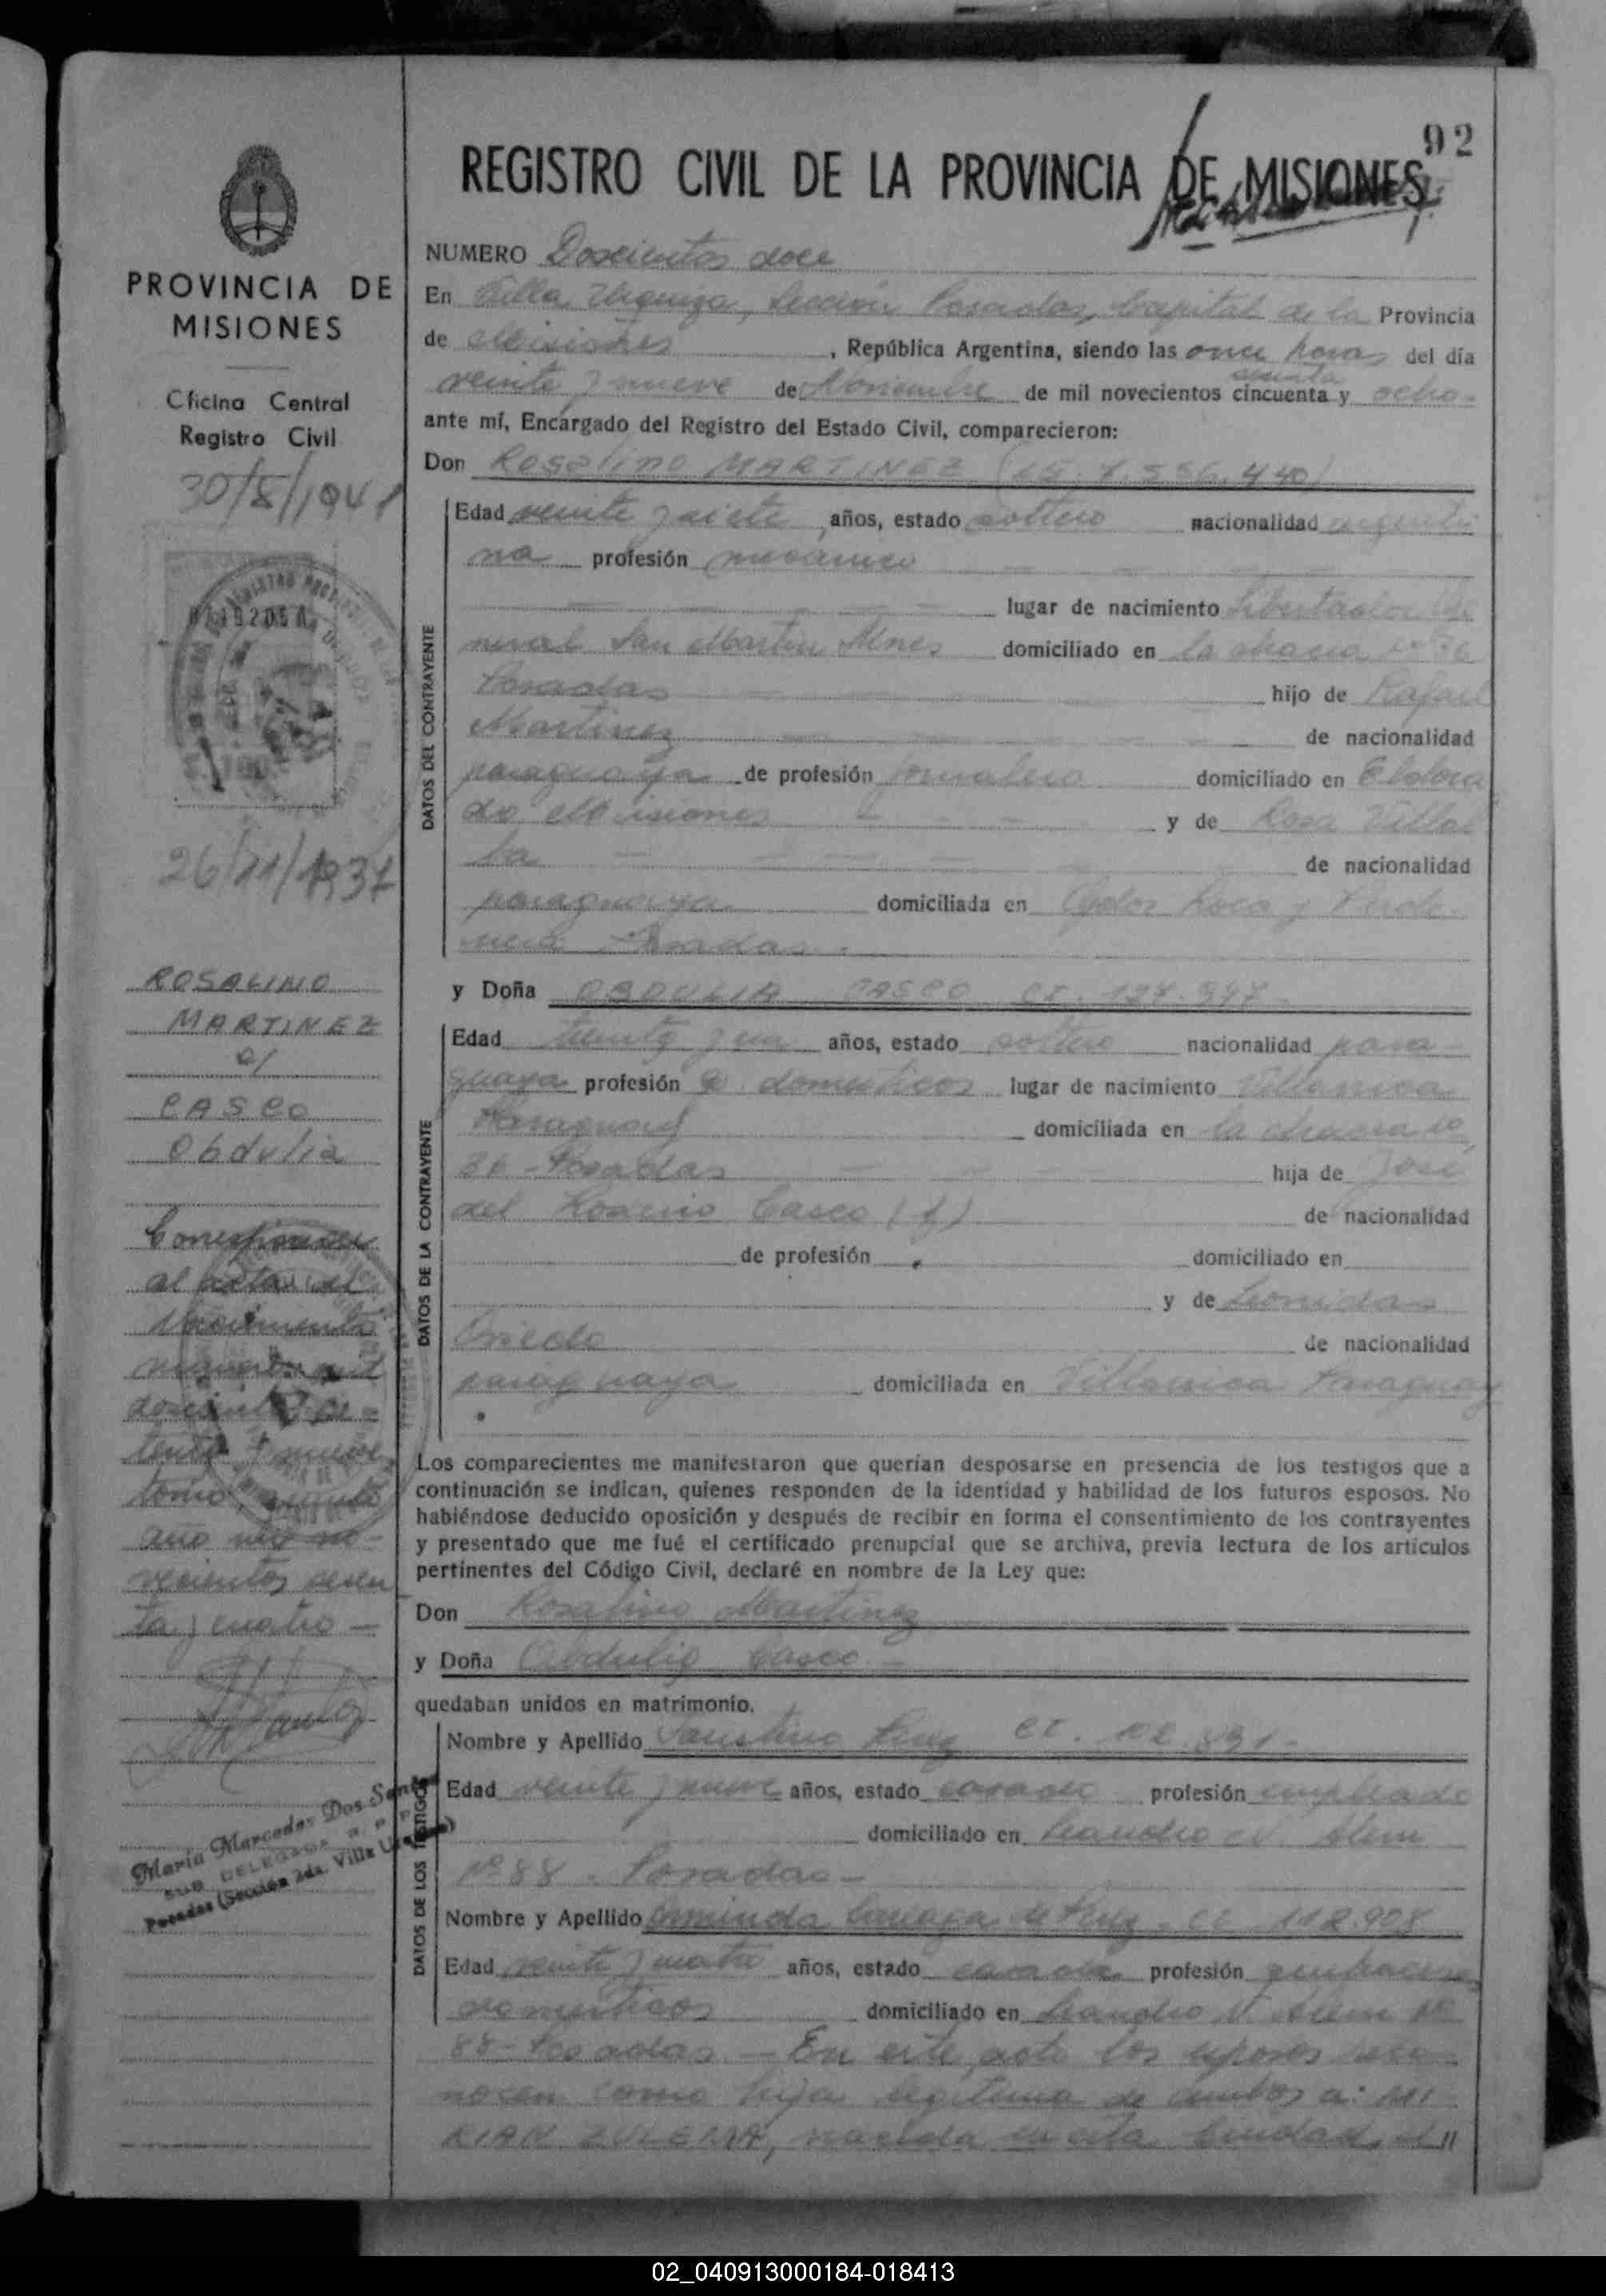 92
REGISTRO CIVIL DE LA PROVINCIA DE MISIONES
PROVINCIA DE
MISIONES
Oficina Central
Registro Civil
30/5/1941
26/11/1937
ROSALINO
MARTINEZ
c/
CASCO
Obdulia
Corresponde
al acta de
Nacimiento
numero mil
doscientos se-
tenta y nueve
tomo
año mil no-
vecientos sesen
ta y cuatro —
Maria Mercedes Dos Santos
SUB DELEGADA R. P.
Posadas (Sección 2da. Villa Urquiza)
NUMERO Doscientos doce
En Villa Urquiza, Sección Posadas, Capital de la Provincia
de Misiones, República Argentina, siendo las once horas del día
sesenta
veinte y nueve de Noviembre de mil novecientos cincuenta y ocho-
ante mí, Encargado del Registro del Estado Civil, comparecieron:
Don Rosalino MARTINEZ
DATOS DEL CONTRAYENTE
Edad veinte y siete años, estado soltero nacionalidad argenti
na profesión mecanico
lugar de nacimiento Libertador Ge
neral San Martin Mnes domiciliado en la chacra
Posadas hijo de Rafael
Martinez de nacionalidad
paraguaya de profesión jornalero domiciliado en Eldora
do Misiones y de Rosa Villal
ba de nacionalidad
paraguaya domiciliada en
Posadas.
y Doña OBDULIA CASCO CI. 127.997-
DATOS DE LA CONTRAYENTE
Edad treinta y un años, estado soltera nacionalidad para-
guaya profesión q. domesticos lugar de nacimiento Villarrica
Paraguay domiciliada en la chacra
36 - Posadas hija de José
del Rosario Casco (f) de nacionalidad
de profesión domiciliado en
y de Leonidas
Oviedo de nacionalidad
paraguaya domiciliada en Villarrica Paraguay
Los comparecientes me manifestaron que querían desposarse en presencia de los testigos que a
continuación se indican, quienes responden de la identidad y habilidad de los futuros esposos. No
habiéndose deducido oposición y después de recibir en forma el consentimiento de los contrayentes
y presentado que me fué el certificado prenupcial que se archiva, previa lectura de los artículos
pertinentes del Código Civil, declaré en nombre de la Ley que:
Don Rosalino Martinez
y Doña Obdulia Casco -
quedaban unidos en matrimonio.
DATOS DE LOS TESTIGOS
Nombre y Apellido Faustino
Edad veinte y nueve años, estado casado profesión empleado
domiciliado en Leandro N. Alem
Nº 88 - Posadas -
Nombre y Apellido CI 112.908
Edad veinte y cuatro años, estado casada profesión quehaceres
domesticos domiciliado en Leandro N. Alem Nº
88 - Posadas. - En este acto los esposos reco-
nocen como hija legitima de ambos a: MI-
RIAN ZULEMA, nacida en esta Ciudad, el //
02_040913000184-018413